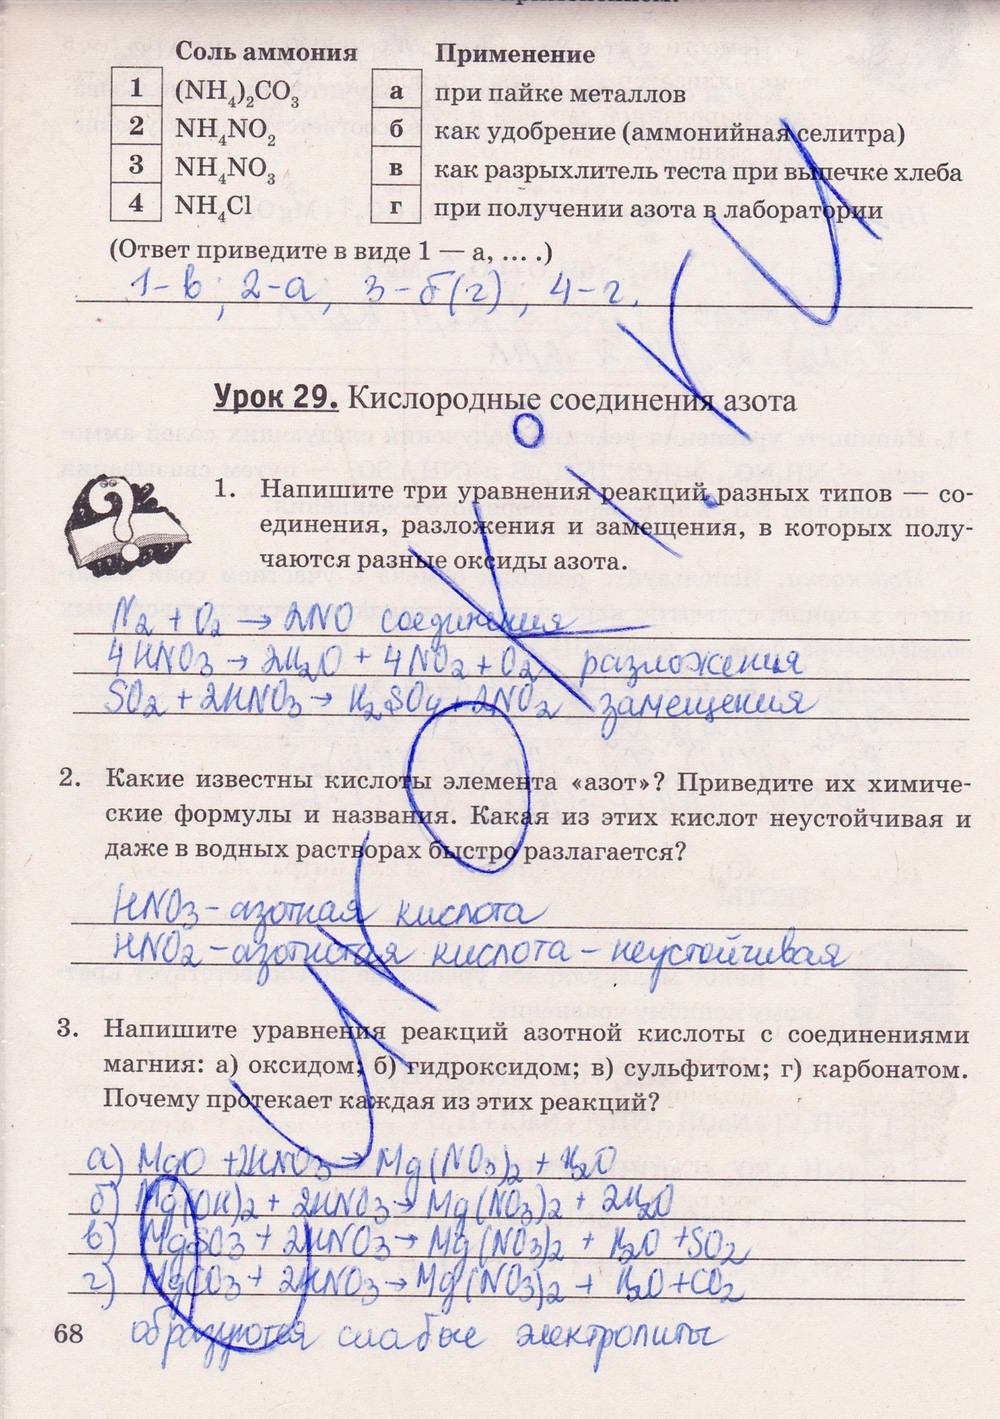 Соль аммония Применение
1 (NH₄)₂CO₃ а при пайке металлов
2 NH₄NO₂ б как удобрение (аммонийная селитра)
3 NH₄NO₃ в как разрыхлитель теста при выпечке хлеба
4 NH₄Cl г при получении азота в лаборатории
(Ответ приведите в виде 1 — а, ... .)
1-в; 2-а, 3-б(г), 4-г.
Урок 29. Кислородные соединения азота
1. Напишите три уравнения реакций разных типов — со-
единения, разложения и замещения, в которых полу-
чаются разные оксиды азота.
N₂ + O₂ → 2NO соединения
4HNO₃ → 2H₂O + 4NO₂ + O₂ разложения
SO₂ + 2HNO₃ → H₂SO₄ + 2NO₂ замещения
2. Какие известны кислоты элемента «азот»? Приведите их химиче-
ские формулы и названия. Какая из этих кислот неустойчивая и
даже в водных растворах быстро разлагается?
HNO₃ - азотная кислота
HNO₂ - азотистая кислота - неустойчивая
3. Напишите уравнения реакций азотной кислоты с соединениями
магния: а) оксидом; б) гидроксидом; в) сульфитом; г) карбонатом.
Почему протекает каждая из этих реакций?
а) MgO + 2HNO₃ → Mg(NO₃)₂ + H₂O
б) Mg(OH)₂ + 2HNO₃ → Mg(NO₃)₂ + 2H₂O
в) MgSO₃ + 2HNO₃ → Mg(NO₃)₂ + H₂O + SO₂
г) MgCO₃ + 2HNO₃ → Mg(NO₃)₂ + H₂O + CO₂
68 образуются слабые электролиты